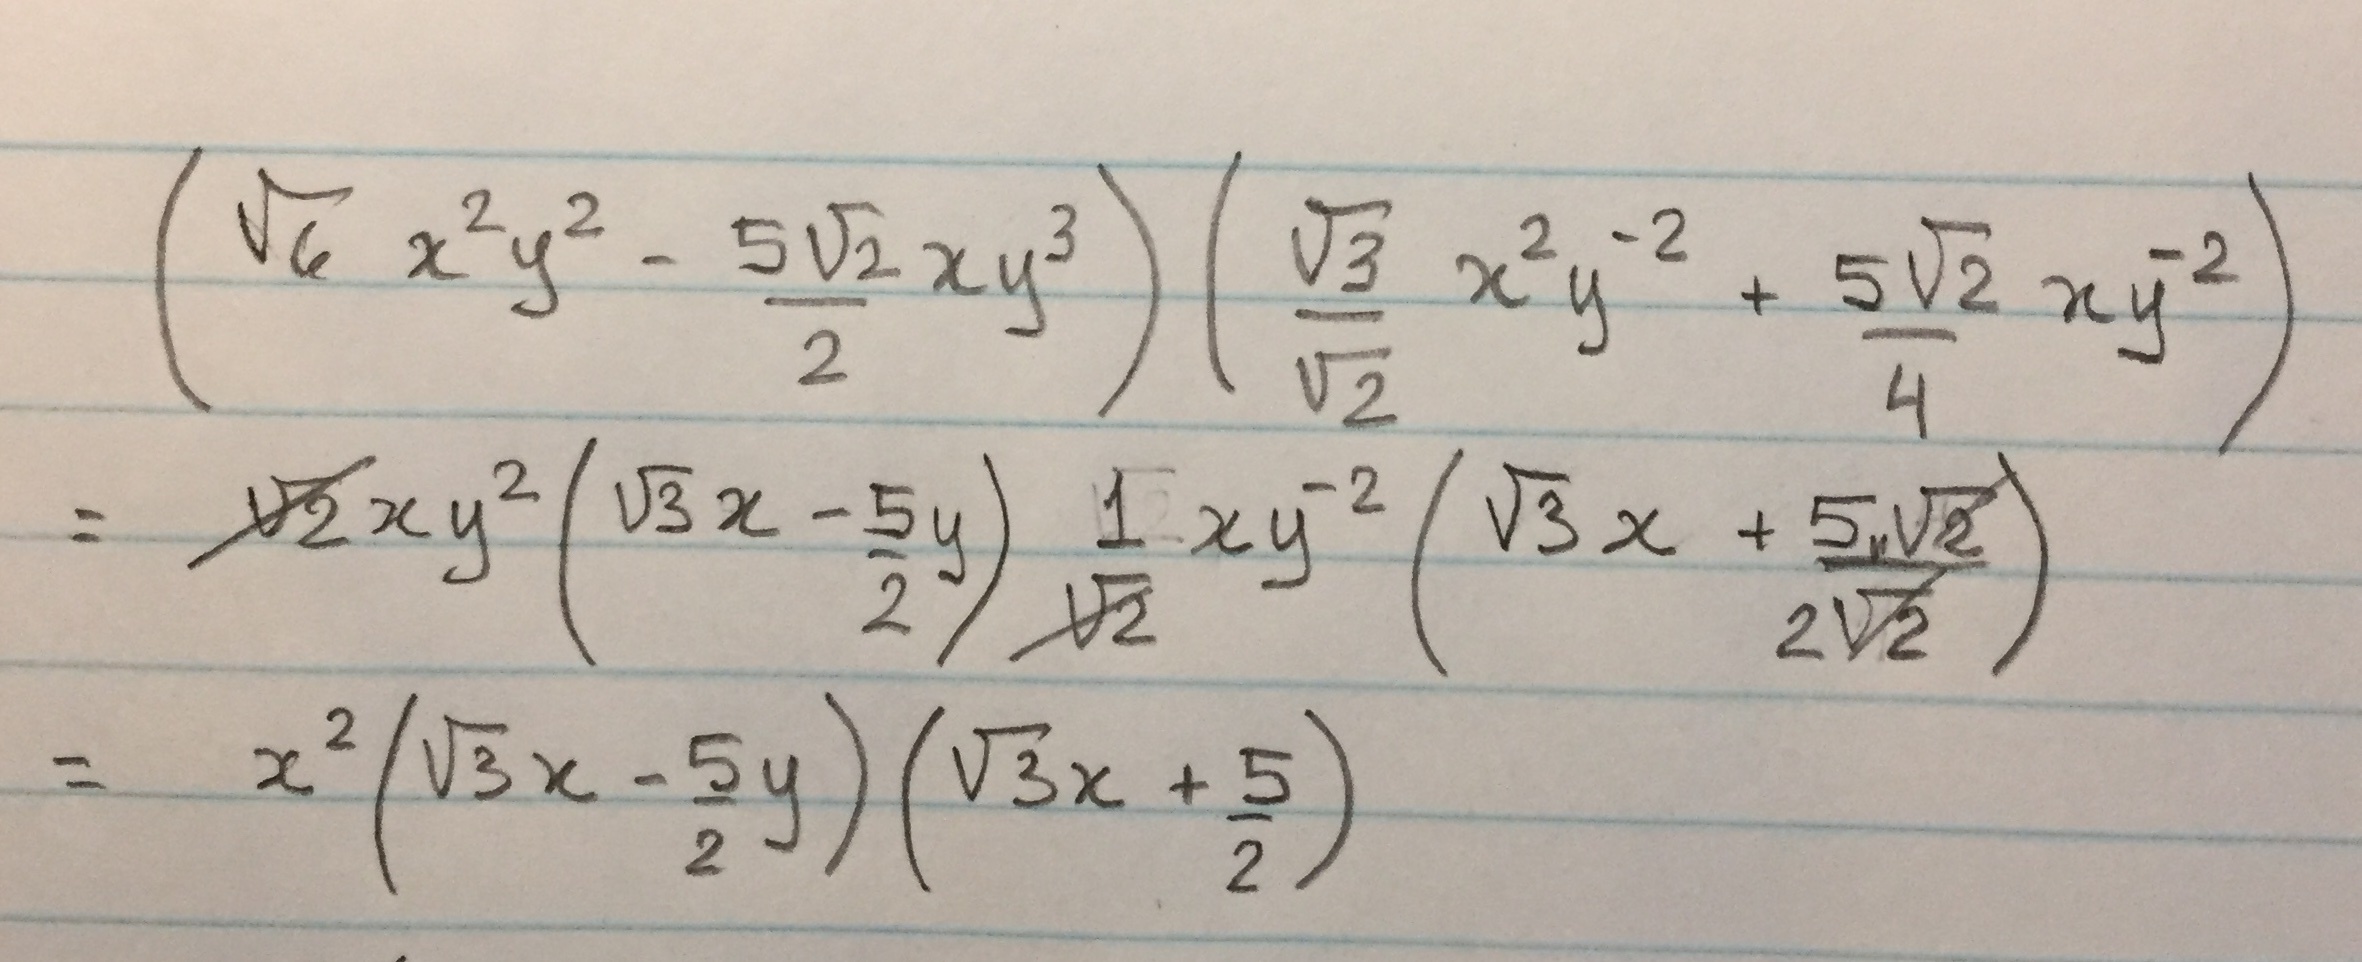 (√6 x²y² - 5√2/2 xy³)(√3/√2 x²y⁻² + 5√2/4 xy⁻²)
= √2xy²(√3x - 5/2y) 1/√2 xy⁻²(√3x + 5√2/2√2)
= x²(√3x - 5/2y)(√3x + 5/2)